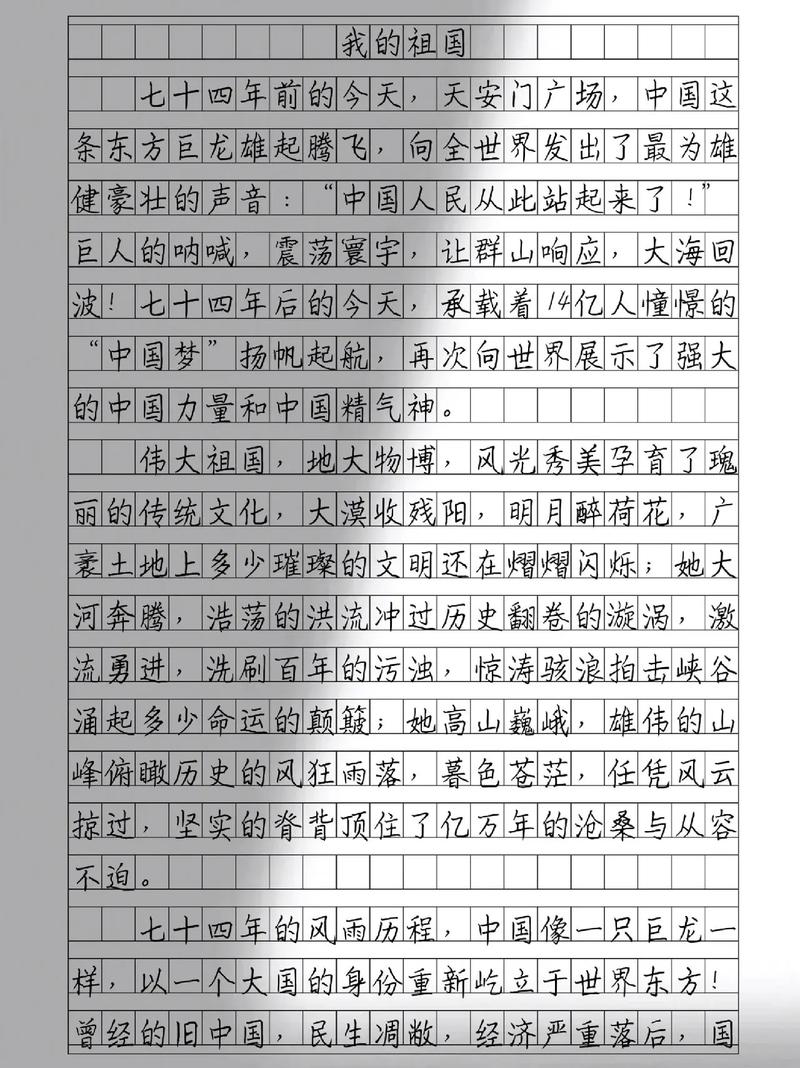 我的祖国
七十四年前的今天，天安门广场，中国这
条东方巨龙雄起腾飞，向全世界发出了最为雄
健豪壮的声音：“中国人民从此站起来了！”
巨人的呐喊，震荡寰宇，让群山响应，大海回
波！七十四年后的今天，承载着14亿人憧憬的
“中国梦”扬帆起航，再次向世界展示了强大
的中国力量和中国精气神。
伟大祖国，地大物博，风光秀美孕育了瑰
丽的传统文化，大漠收残阳，明月醉荷花，广
袤土地上多少璀璨的文明还在熠熠闪烁；她大
河奔腾，浩荡的洪流冲过历史翻卷的漩涡，激
流勇进，洗刷百年的污浊，惊涛骇浪拍击峡谷
涌起多少命运的颠簸；她高山巍峨，雄伟的山
峰俯瞰历史的风狂雨落，暮色苍茫，任凭风云
掠过，坚实的脊背顶住了亿万年的沧桑与从容
不迫。
七十四年的风雨历程，中国像一只巨龙一
样，以一个大国的身份重新屹立于世界东方！
曾经的旧中国，民生凋敝，经济严重落后，国